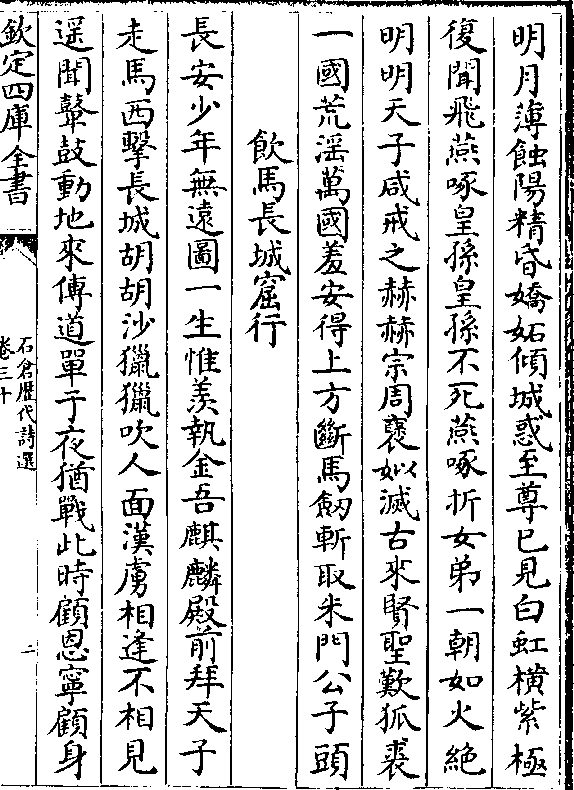 明月薄蝕陽精昏嬌妬傾城惑至尊已見白虹橫紫極
復聞飛燕啄皇孫皇孫不死燕啄折女弟一朝如火絶
明明天子咸戒之赫赫宗周褒姒滅古來賢聖歎狐裘
一國荒滛萬國羞安得上方斷馬劒斬取朱門公子頭
飲馬長城窟行
長安少年無遠圖一生惟羡執金吾麒麟殿前拜天子
走馬西擊長城胡胡沙獵獵吹人面漢虜相逢不相見
遥聞鼙鼓動地來傳道單于夜猶戰此時顧恩寧顧身
欽定四庫全書
石倉歴代詩選
卷三十
二